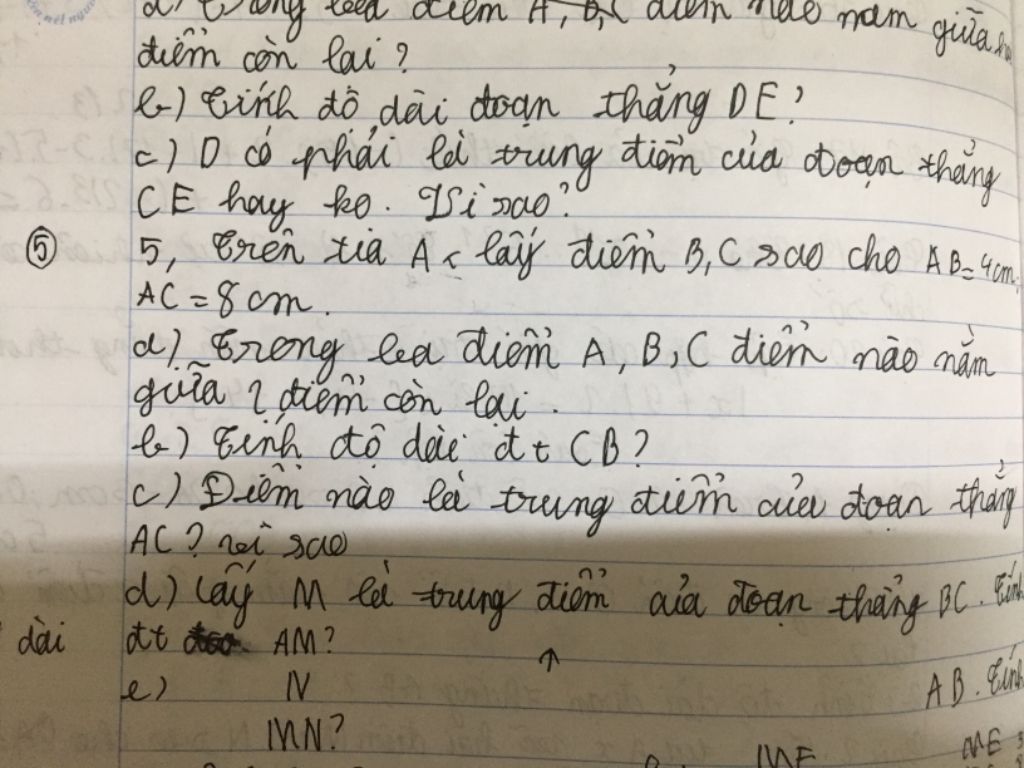 a) Trong ba điểm A, B, C điểm nào nằm giữa
điểm còn lại?
b) Tính độ dài đoạn thẳng DE?
c) D có phải là trung điểm của đoạn thẳng
CE hay ko. Vì sao?
⑤ 5, Trên tia A lấy điểm B, C sao cho AB = 4cm,
AC = 8 cm.
a) Trong ba điểm A, B, C điểm nào nằm
giữa 2 điểm còn lại.
b) Tính độ dài đt CB?
c) Điểm nào là trung điểm của đoạn thẳng
AC? vì sao
d) Lấy M là trung điểm của đoạn thẳng BC. Tính
dài đt AM?
e) N ↑ AB. Tính
MN?
ME ME